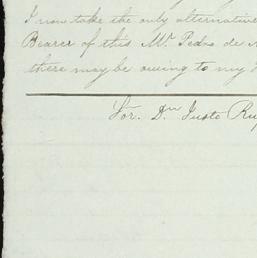 I now take the only alternative
Bearer of this Mr. Pedro de
there may be owing to my
For. Dn Justo